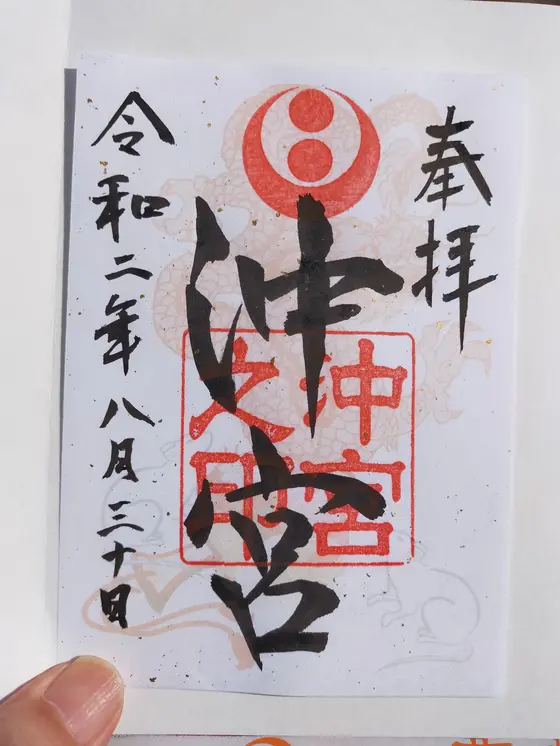 奉拝
沖宮
沖宮之印
令和二年八月三十日